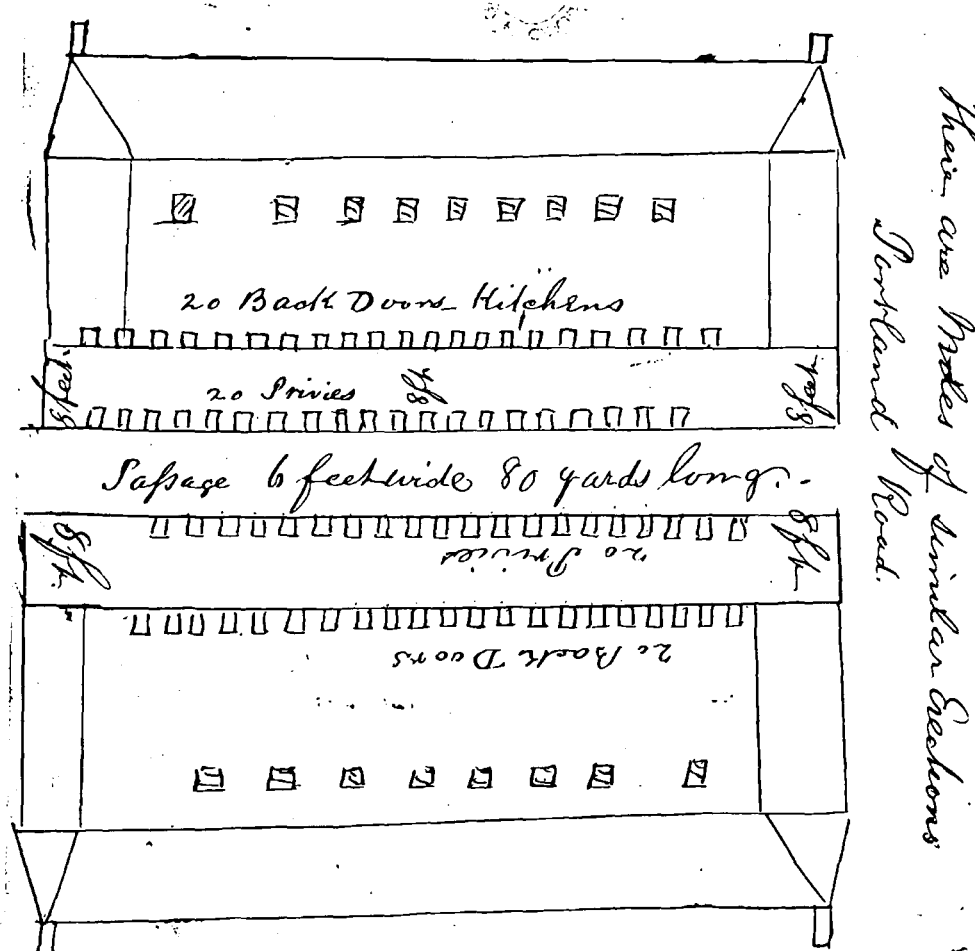 20 Back Doors - Kitchens
8 feet
20 Privies
8 ft
8 feet
Passage 6 feet wide 80 yards long. -
8 ft.
20 Privies
8 ft
20 Back Doors
Their are Miles of similar Erections
Portland Road.